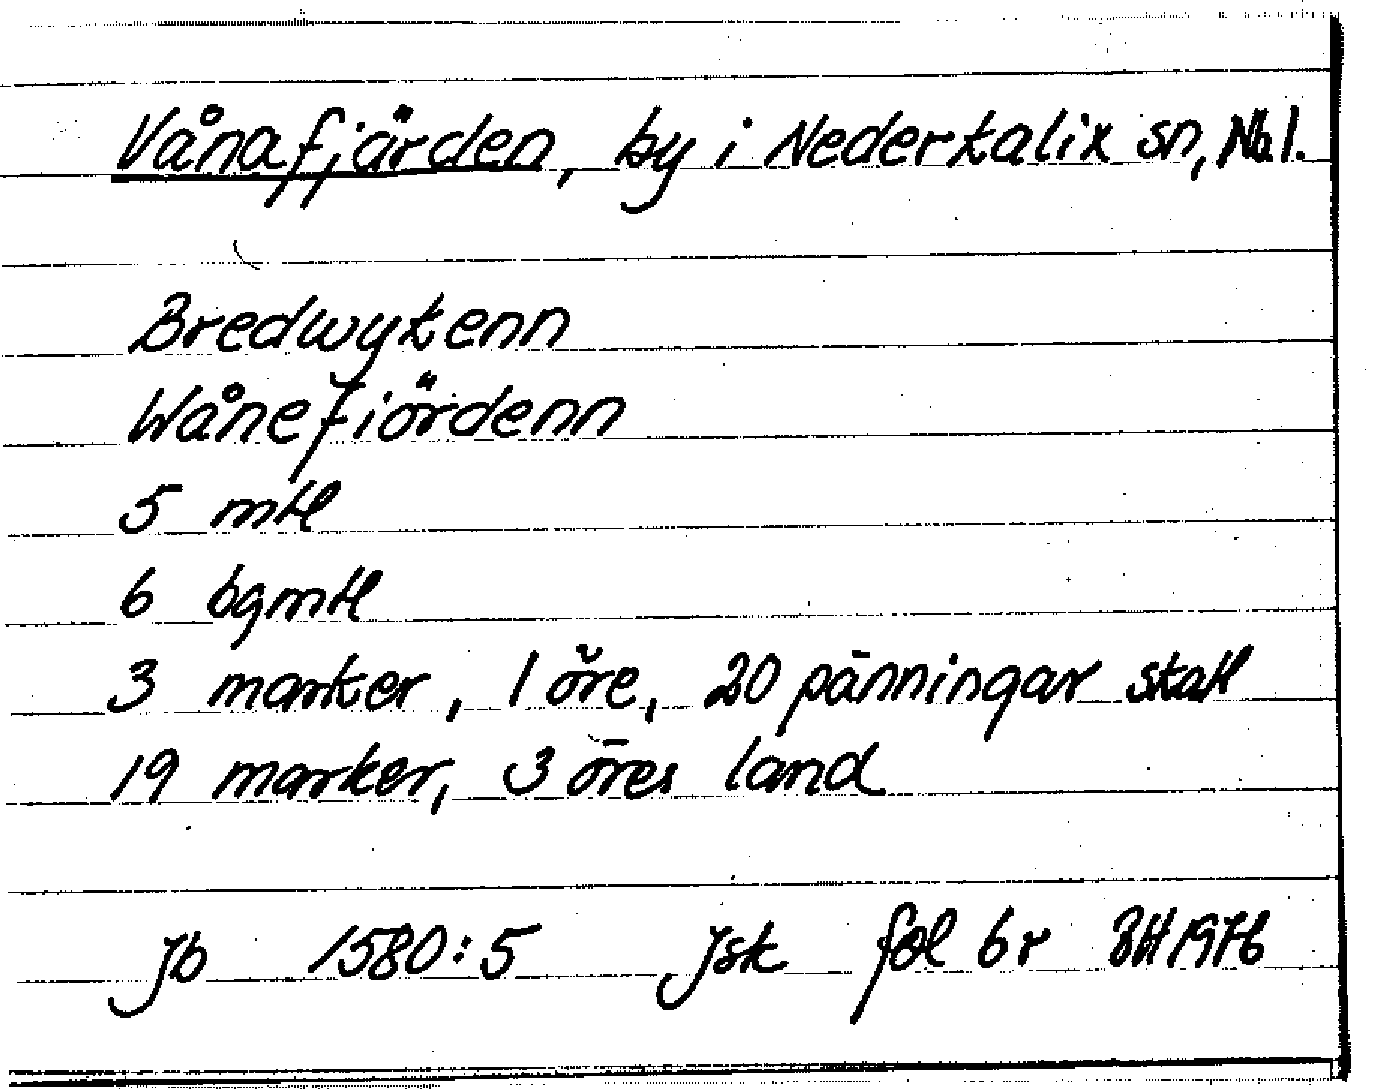 Vånafjärden, by i Nederkalix sn, Nbl.
Bredwykenn
Wånefiördenn
5 mtl
6 bgmtl
3 marker, 1 öre, 20 pänningar skatt
19 marker, 3 öres land
Jb 1580:5 Jsk fol 6r